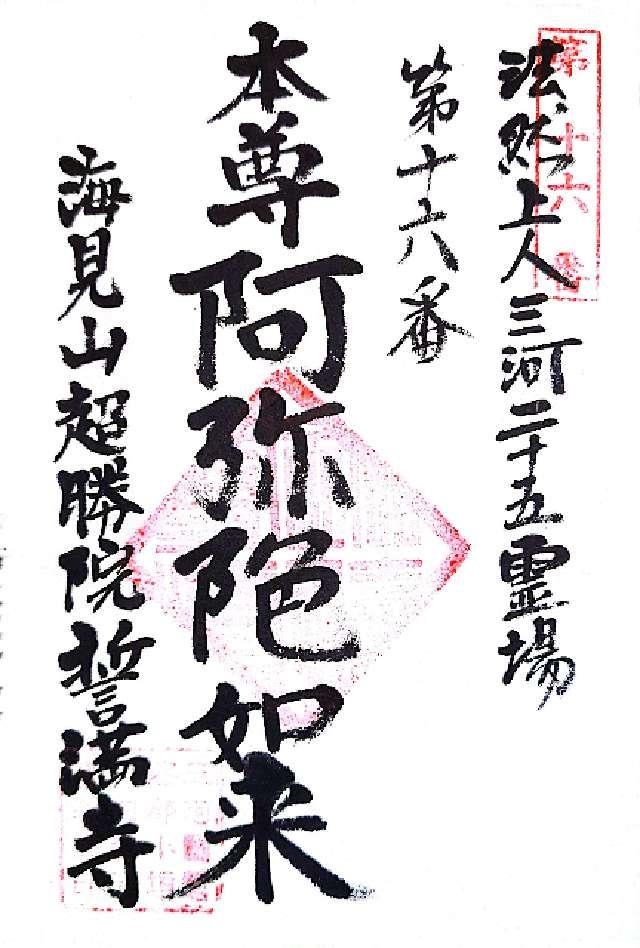 第十六番
法然上人三河二十五霊場
第十六番
本尊阿弥陀如来
海見山超勝院誓満寺